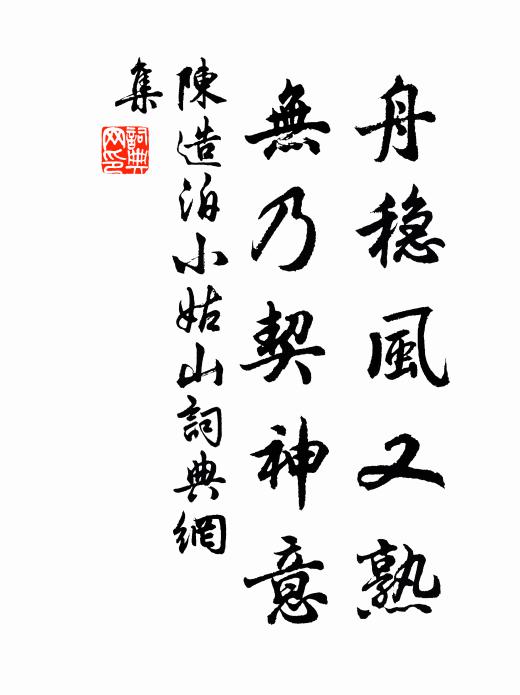 舟穩風又熟
無乃契神意
陳造泊小姑山詞典網
集
詞典網印